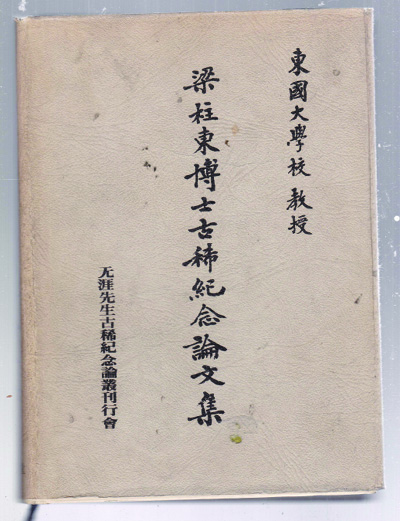 東國大學校 教授
梁柱東博士古稀紀念論文集
无涯先生古稀紀念論叢刊行會